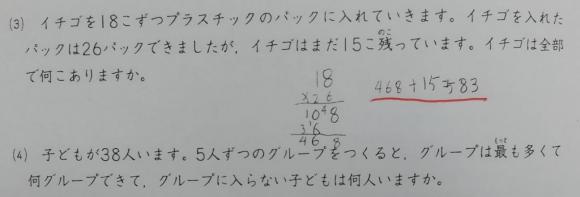 (3) イチゴを18こずつプラスチックのパックに入れていきます。イチゴを入れた
パックは26パックできましたが、イチゴはまだ15こ残っています。イチゴは全部
で何こありますか。
18
×26
108
36
468
468+15=83
(4) 子どもが38人います。5人ずつのグループをつくると、グループは最も多くて
何グループできて、グループに入らない子どもは何人いますか。